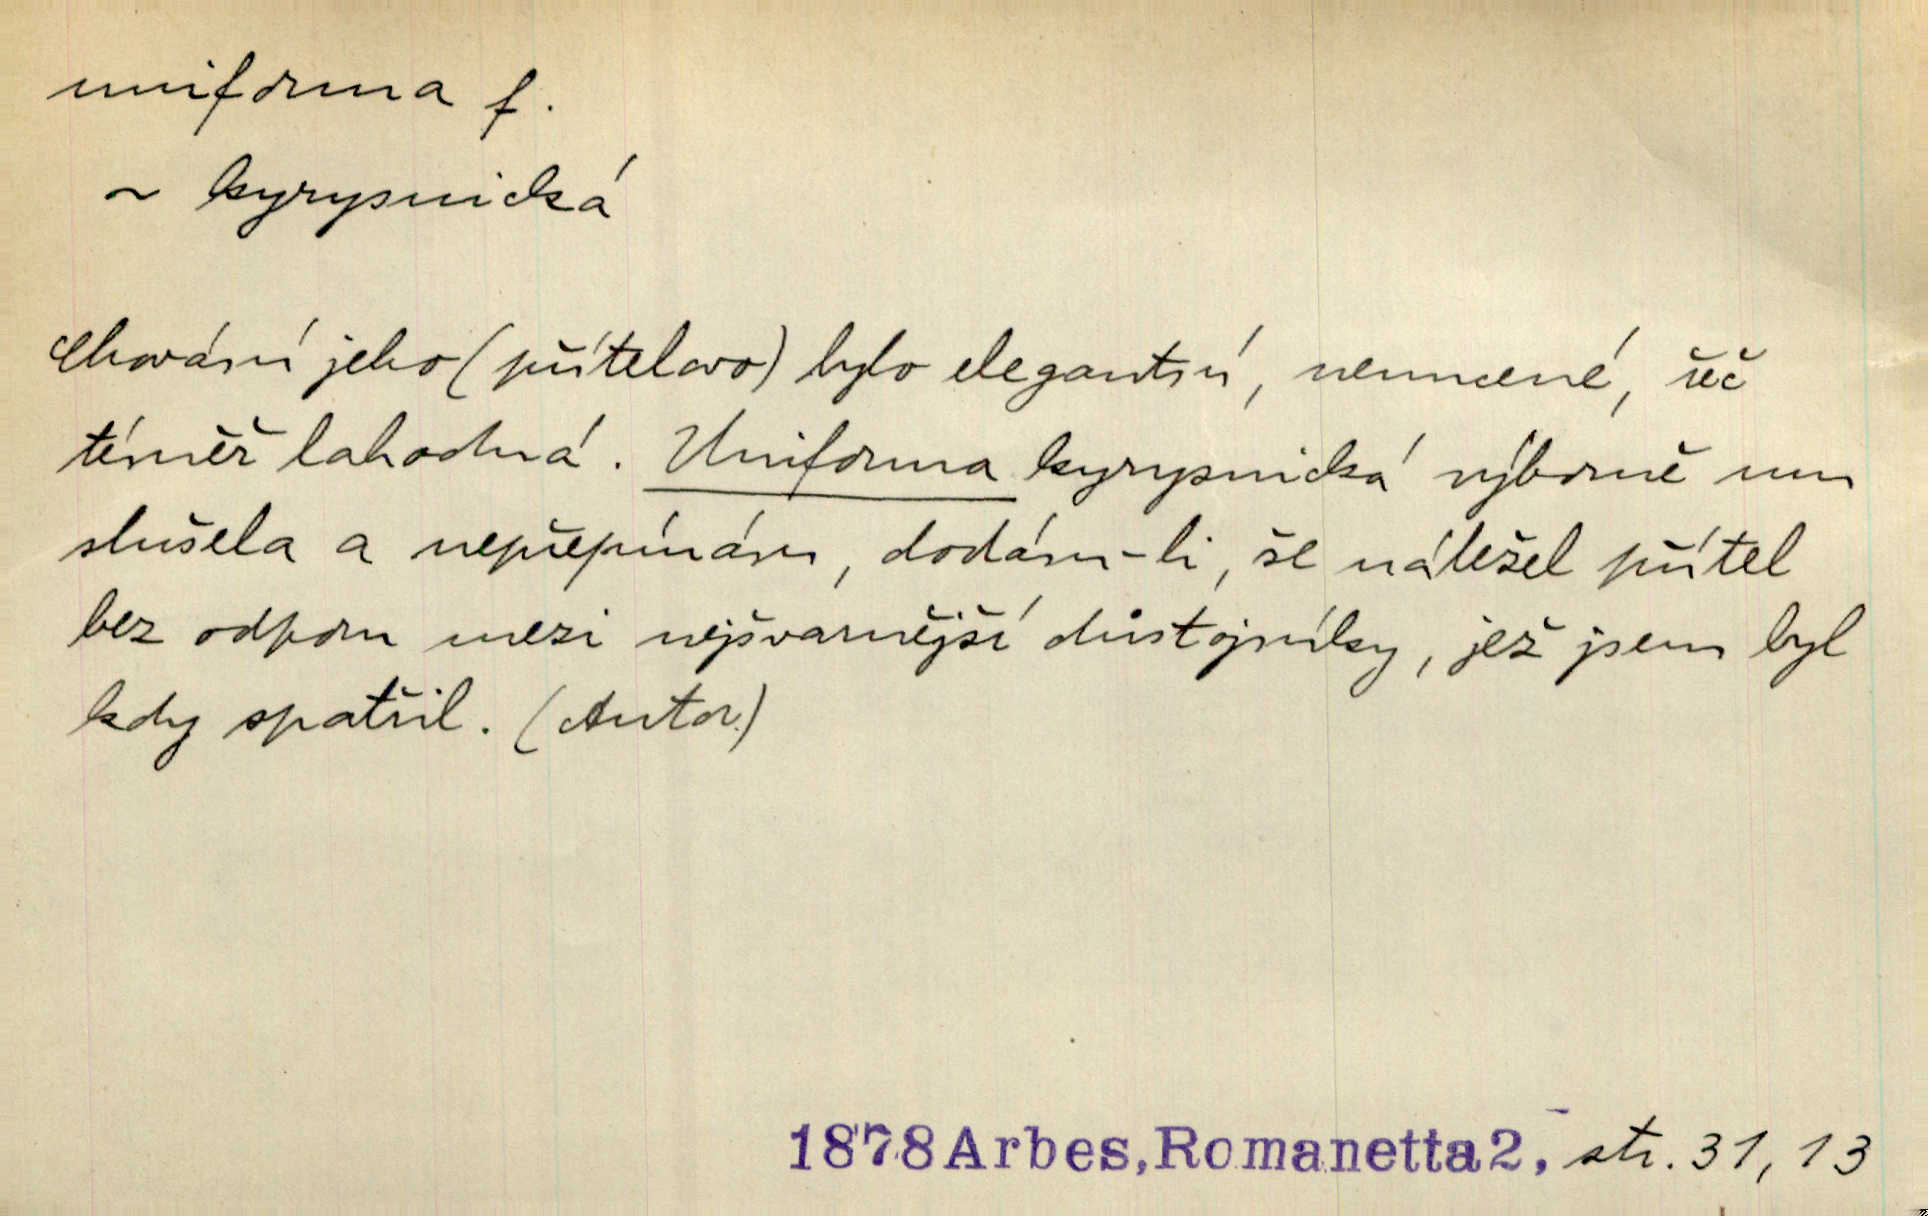 uniforma f.
~ kyrysnická
Chování jeho (přítelovo) bylo elegantní, nenucené, řeč
téměř lahodná. Uniforma kyrysnická výborně mu
slušela a nepřepínám, dodám-li, že náležel přítel
bez odporu mezi nejšvarnější důstojníky, jež jsem byl
kdy spatřil. (Autor)
1878 Arbes, Romanetta 2, str. 31, 13